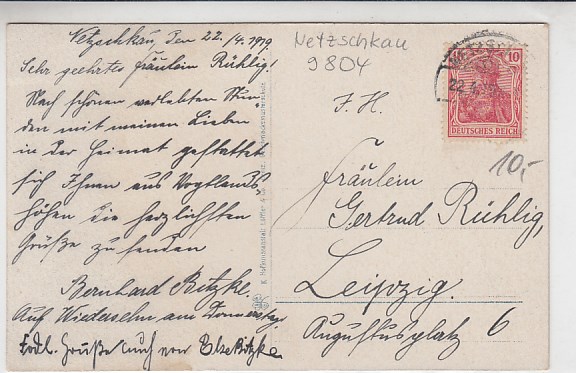 Netzschkau, den 22./4. 1919.
Sehr geehrtes Fräulein Rühlig!
Nach schönen verlebten Stun-
den mit meinen Lieben
in der Heimat gestattet
sich Ihnen aus Vogtlands
höhen die herzlichsten
Grüße zu senden
Bernhard Bitzke.
Auf Wiedersehn am Donnerstag.
Grüße auch von Else Bitzke
Netzschkau
9804
10
DEUTSCHES REICH
22.4.
10,-
Fräulein
Gertrud Rühlig,
Leipzig.
Augustusplatz 6